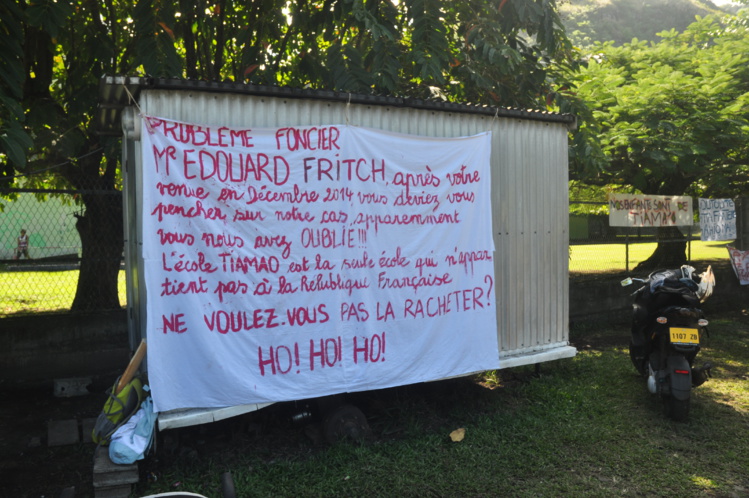 PROBLÈME FONCIER
Mr EDOUARD FRITCH, après votre
venue en Décembre 2014 vous deviez vous
pencher sur notre cas, apparemment
vous nous avez OUBLIÉ!!!
L'école TIAMAO est la seule école qui n'appar
tient pas à la République Française
NE VOULEZ-VOUS PAS LA RACHETER?
HO! HO! HO!
NOS ENFANTS SONT DE
TIAMAO
1107 ZB